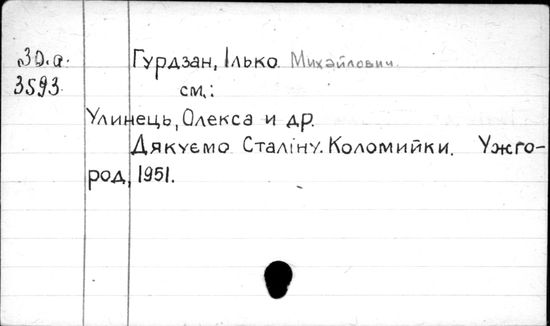 3D.a. Гурдзан, Ілько Михайлович.
3593. см.:
Улинець, Олекса и др.
Дякуємо Сталіну. Коломийки. Ужго-
род, 1951.